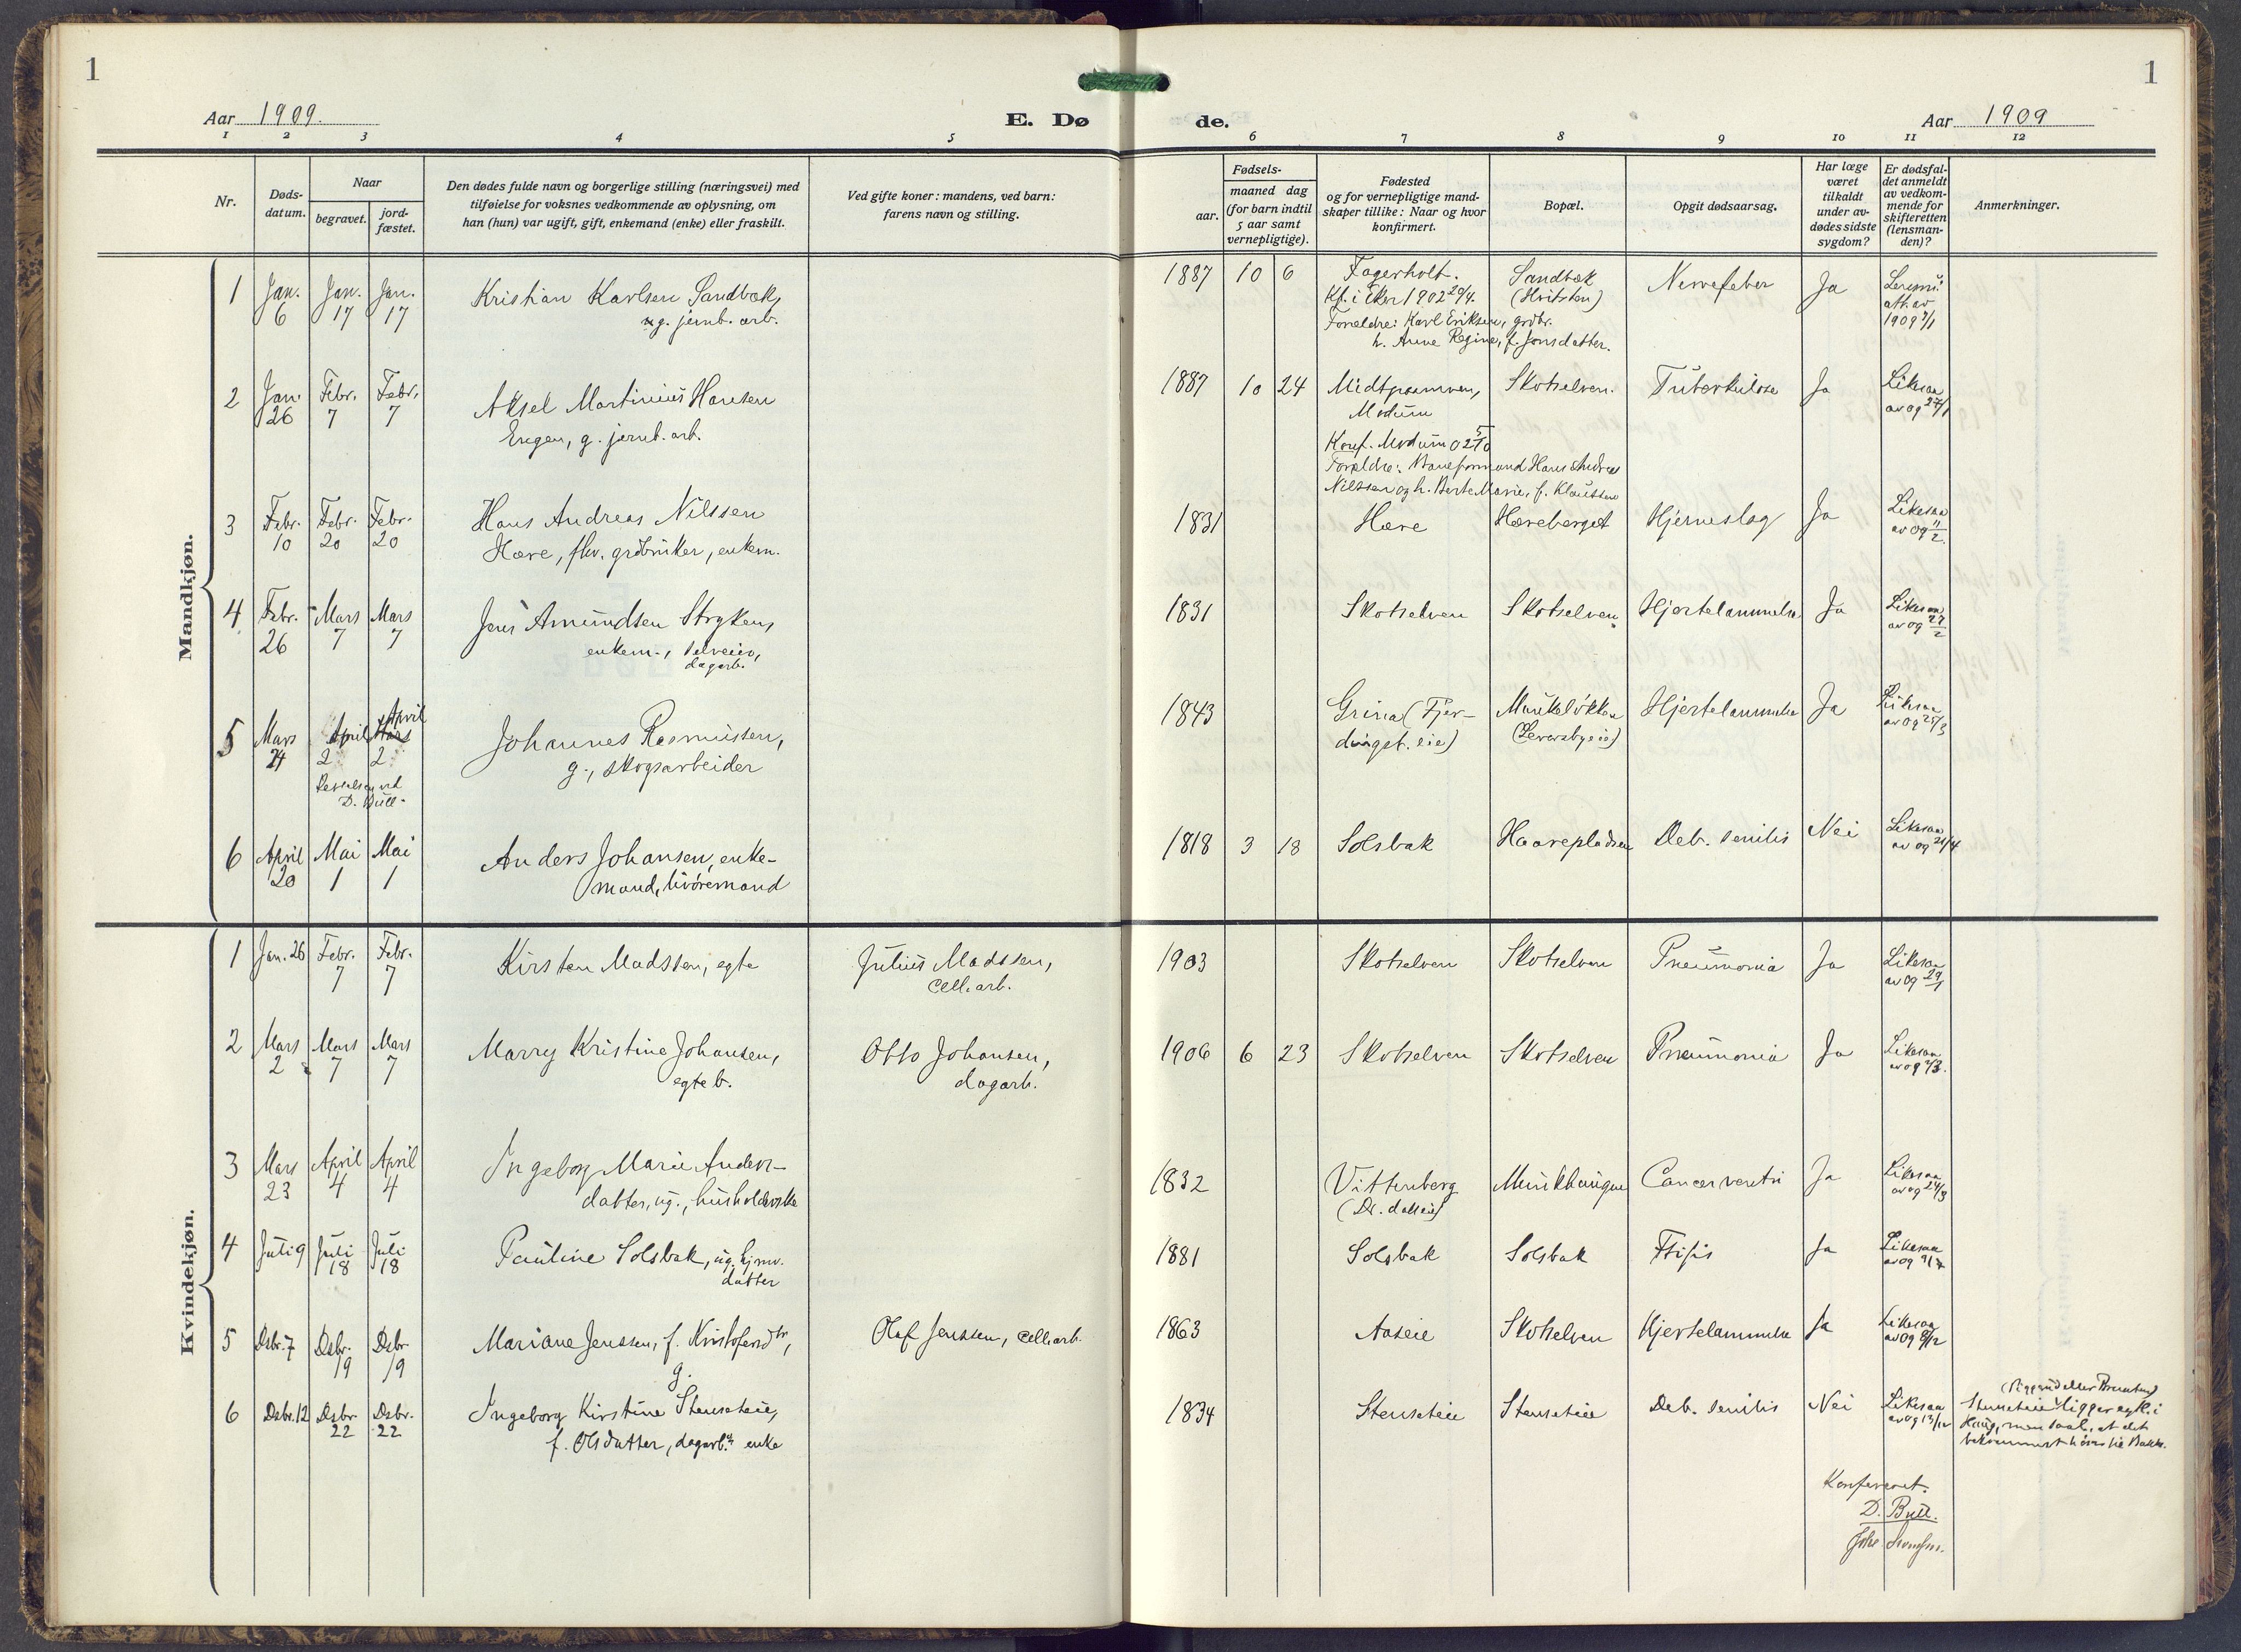 1
1
Aar 1909.
E. Dø
de.
Aar 1909
1 2 3 4 5 6 7 8 9 10 11 12
Nr.
Døds-
datum.
Naar
begravet.
jord-
fæstet.
Den dødes fulde navn og borgerlige stilling (næringsvei) med
tilføielse for voksnes vedkommende av oplysning, om
han (hun) var ugift, gift, enkemand (enke) eller fraskilt.
Ved gifte koner: mandens, ved barn:
farens navn og stilling.
Fødsels-
aar.
maaned dag
(for barn indtil
5 aar samt
vernepligtige).
Fødested
og for vernepligtige mand-
skaper tillike: Naar og hvor
konfirmert.
Bopæl.
Opgit dødsaarsag.
Har læge
været
tilkaldt
under av-
dødes sidste
sygdom?
Er dødsfal-
det anmeldt
av vedkom-
mende for
skifteretten
(lensman-
den)?
Anmerkninger.
Mandkjøn.
1 Jan. 6 Jan. 17 Jan. 17
Kristian Karlsen Sandbæk,
ug. jernb. arb.
1887 10 6
Fagerholt.
Kf. i Eker 1902 20/4.
Forældre: Karl Eriksen, grdbr.
h. Anne Regine, f. Jonsdatter.
Sandbæk
(Hvitsten)
Nervefeber
Ja
att. av
1909
2 Jan. 26 Febr. 7 Febr. 7
Aksel Martinius Hansen
Engen, g. jernb. arb.
1887 10 24
Modum
Konf. Modum 02 5/10
Forældre: Baneformand Hans Andreas
Nilssen og h. Berte Marie, f. Klausen
Skotselven.
Tuberkulose
Ja
Likesaa
av 09 27/1
3 Febr. 10 Febr. 20 Febr. 20
Hans Andreas Nilssen
Hære, fhv. grdbruker, enkem.
1831
Hære
Hæreberget
Hjerneslag
Ja
Likesaa
av 09 11/2.
4 Febr. 26 Mars 7 Mars 7
Jens Amundsen Stryken,
enkem., selveier,
dagarb.
1831
Skotselven
Skotselven
Hjertelammelse
Ja
Likesaa
av 09 27/2
5 Mars 24 April 2 Mars April 2
D. Bull.
Johannes Rasmussen,
g., skogsarbeider
1843
Grina (Fjer-
dingst. eie)
Munkeløkken
Hjertelammelse
Ja
Likesaa
av 09 25/3
6 April 20 Mai 1 Mai 1
Anders Johansen, enke-
mand, livøremand
1818 3 18
Solsbak
Haarepladsen
Deb. senilis
Nei
Likesaa
av 09 21/4
Kvindekjøn.
1 Jan. 26 Febr. 7 Febr. 7
Kirsten Madssen, egte
Julius Madssen,
cell. arb.
1903
Skotselven
Skotselven
Pneumonia
Ja
Likesaa
av 09 29/1
2 Mars 2 Mars 7 Mars 7
Marry Kristine Johansen,
egte b.
Otto Johansen,
dagarb.
1906 6 23
Skotselven
Skotselven
Pneumonia
Ja
Likesaa
3 Mars 23 April 4 April 4
Ingeborg Marie Anders-
datter, ug., husholderske
1832
Vittenberg
Munkhaugen
Cancer ventri
Ja
Likesaa
av 09 24/3
4 Juli 9 Juli 18 Juli 18
Pauline Solsbak, ug. hjmv.
datter
1881
Solsbak
Solsbak
Ftisis
Ja
Likesaa
5 Dsbr. 7 Dsbr. 19 Dsbr. 19
Mariane Jenssen, f. Kristofersdtr,
g.
Olaf Jenssen, cell. arb.
1863
Aaseie
Skotselven
Hjertelammelse
Ja
Likesaa
av 09 8/12
6 Dsbr. 12 Dsbr. 22 Dsbr. 22
Ingeborg Kirstine Stenseteie,
f. Olsdatter, dagarb.s enke
1834
Stenseteie
Stenseteie
Deb. senilis
Nei
Likesaa
av 09 13/12
Stenseteie ligger egtl. i
Haug, men saal. at det
bekvemmest høres til Bakke.
Konfereret.
D. Bull.